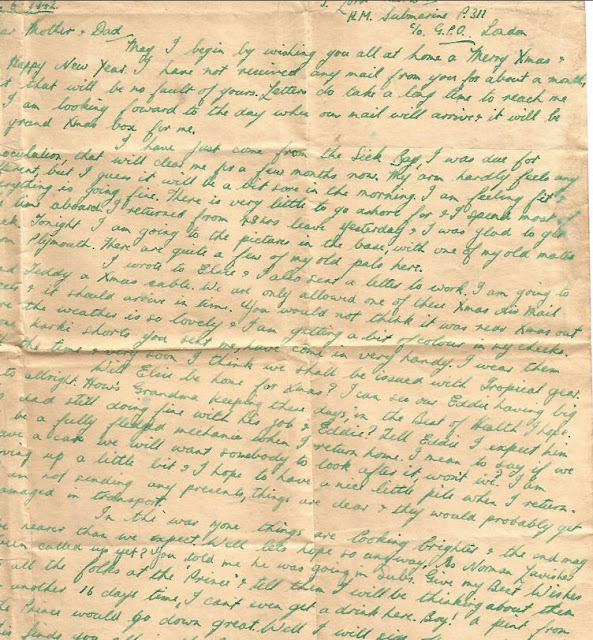 H.M. Submarine P.311
c/o G.P.O. London
Mother & Dad
May I begin by wishing you all at home a Merry Xmas &
Happy New Year. I have not received any mail from you for about a month
that will be no fault of yours. Letters do take a long time to reach me
I am looking foward to the day when our mail will arrive & it will be
grand Xmas box for me.
I have just come from the Sick Bay, I was due for
that will clear me for a few months now. My arm hardly feels any
but I guess it will be a bit sore in the morning. I am feeling fit &
is going fine. There is very little to go ashore for & I spend most of
time aboard. I returned from 48 hrs leave yesterday & I was glad to get
Tonight I am going to the pictures in the base, with one of my old mates
Plymouth. There are quite a few of my old pals here.
I wrote to Elsie & I also sent a letter to work. I am going to
Teddy a Xmas cable. We are only allowed one of these Xmas Air Mail
& it should arrive in time. You would not think it was near Xmas out
the weather is so lovely & I am getting a bit of colour in my cheeks.
karki shorts you sent me, have come in very handy. I wear them
the time. very soon I think we shall be issued with Tropical gear.
Will Elsie be home for Xmas? I can see our Eddie having big
alright. How's Grandma keeping these days, in the Best of Health I hope.
dad still doing fine with his job & Eddie? Tell Eddie I expect him
be a fully fledged mechanic when I return home. I mean to say if we
a car we will want somebody to look after it, won't we? I am
up a little bit & I hope to have a nice little pile when I return.
not sending any presents, things are dear & they would probably get
in transport.
In this war zone things are looking brighter & the end may
nearer than we expect. Well lets hope so anyway. Has Norman
called up yet? you told me he was going in Subs. Give my Best Wishes
all the folks at the 'Prince' & tell them I will be thinking about them
another 16 days time, I can't even get a drink here. Boy! a pint from
the Prince would go down great. Well I will